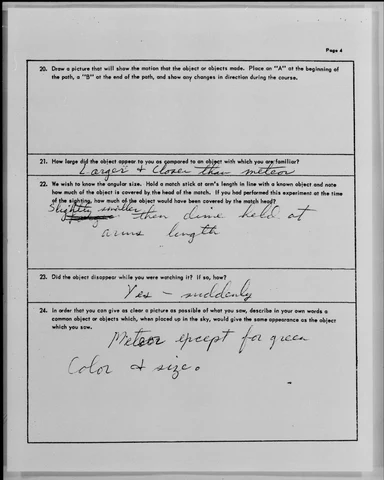 Page 4
20. Draw a picture that will show the motion that the object or objects made. Place an "A" at the beginning of
the path, a "B" at the end of the path, and show any changes in direction during the course.
21. How large did the object appear to you as compared to an object with which you are familiar?
Larger & closer than meteor
22. We wish to know the angular size. Hold a match stick at arm's length in line with a known object and note
how much of the object is covered by the head of the match. If you had performed this experiment at the time
of the sighting, how much of the object would have been covered by the match head?
Slightly smaller
then dime held at
arms length
23. Did the object disappear while you were watching it? If so, how?
Yes - suddenly
24. In order that you can give as clear a picture as possible of what you saw, describe in your own words a
common object or objects which, when placed up in the sky, would give the same appearance as the object
which you saw.
Meteor except for green
Color & size.